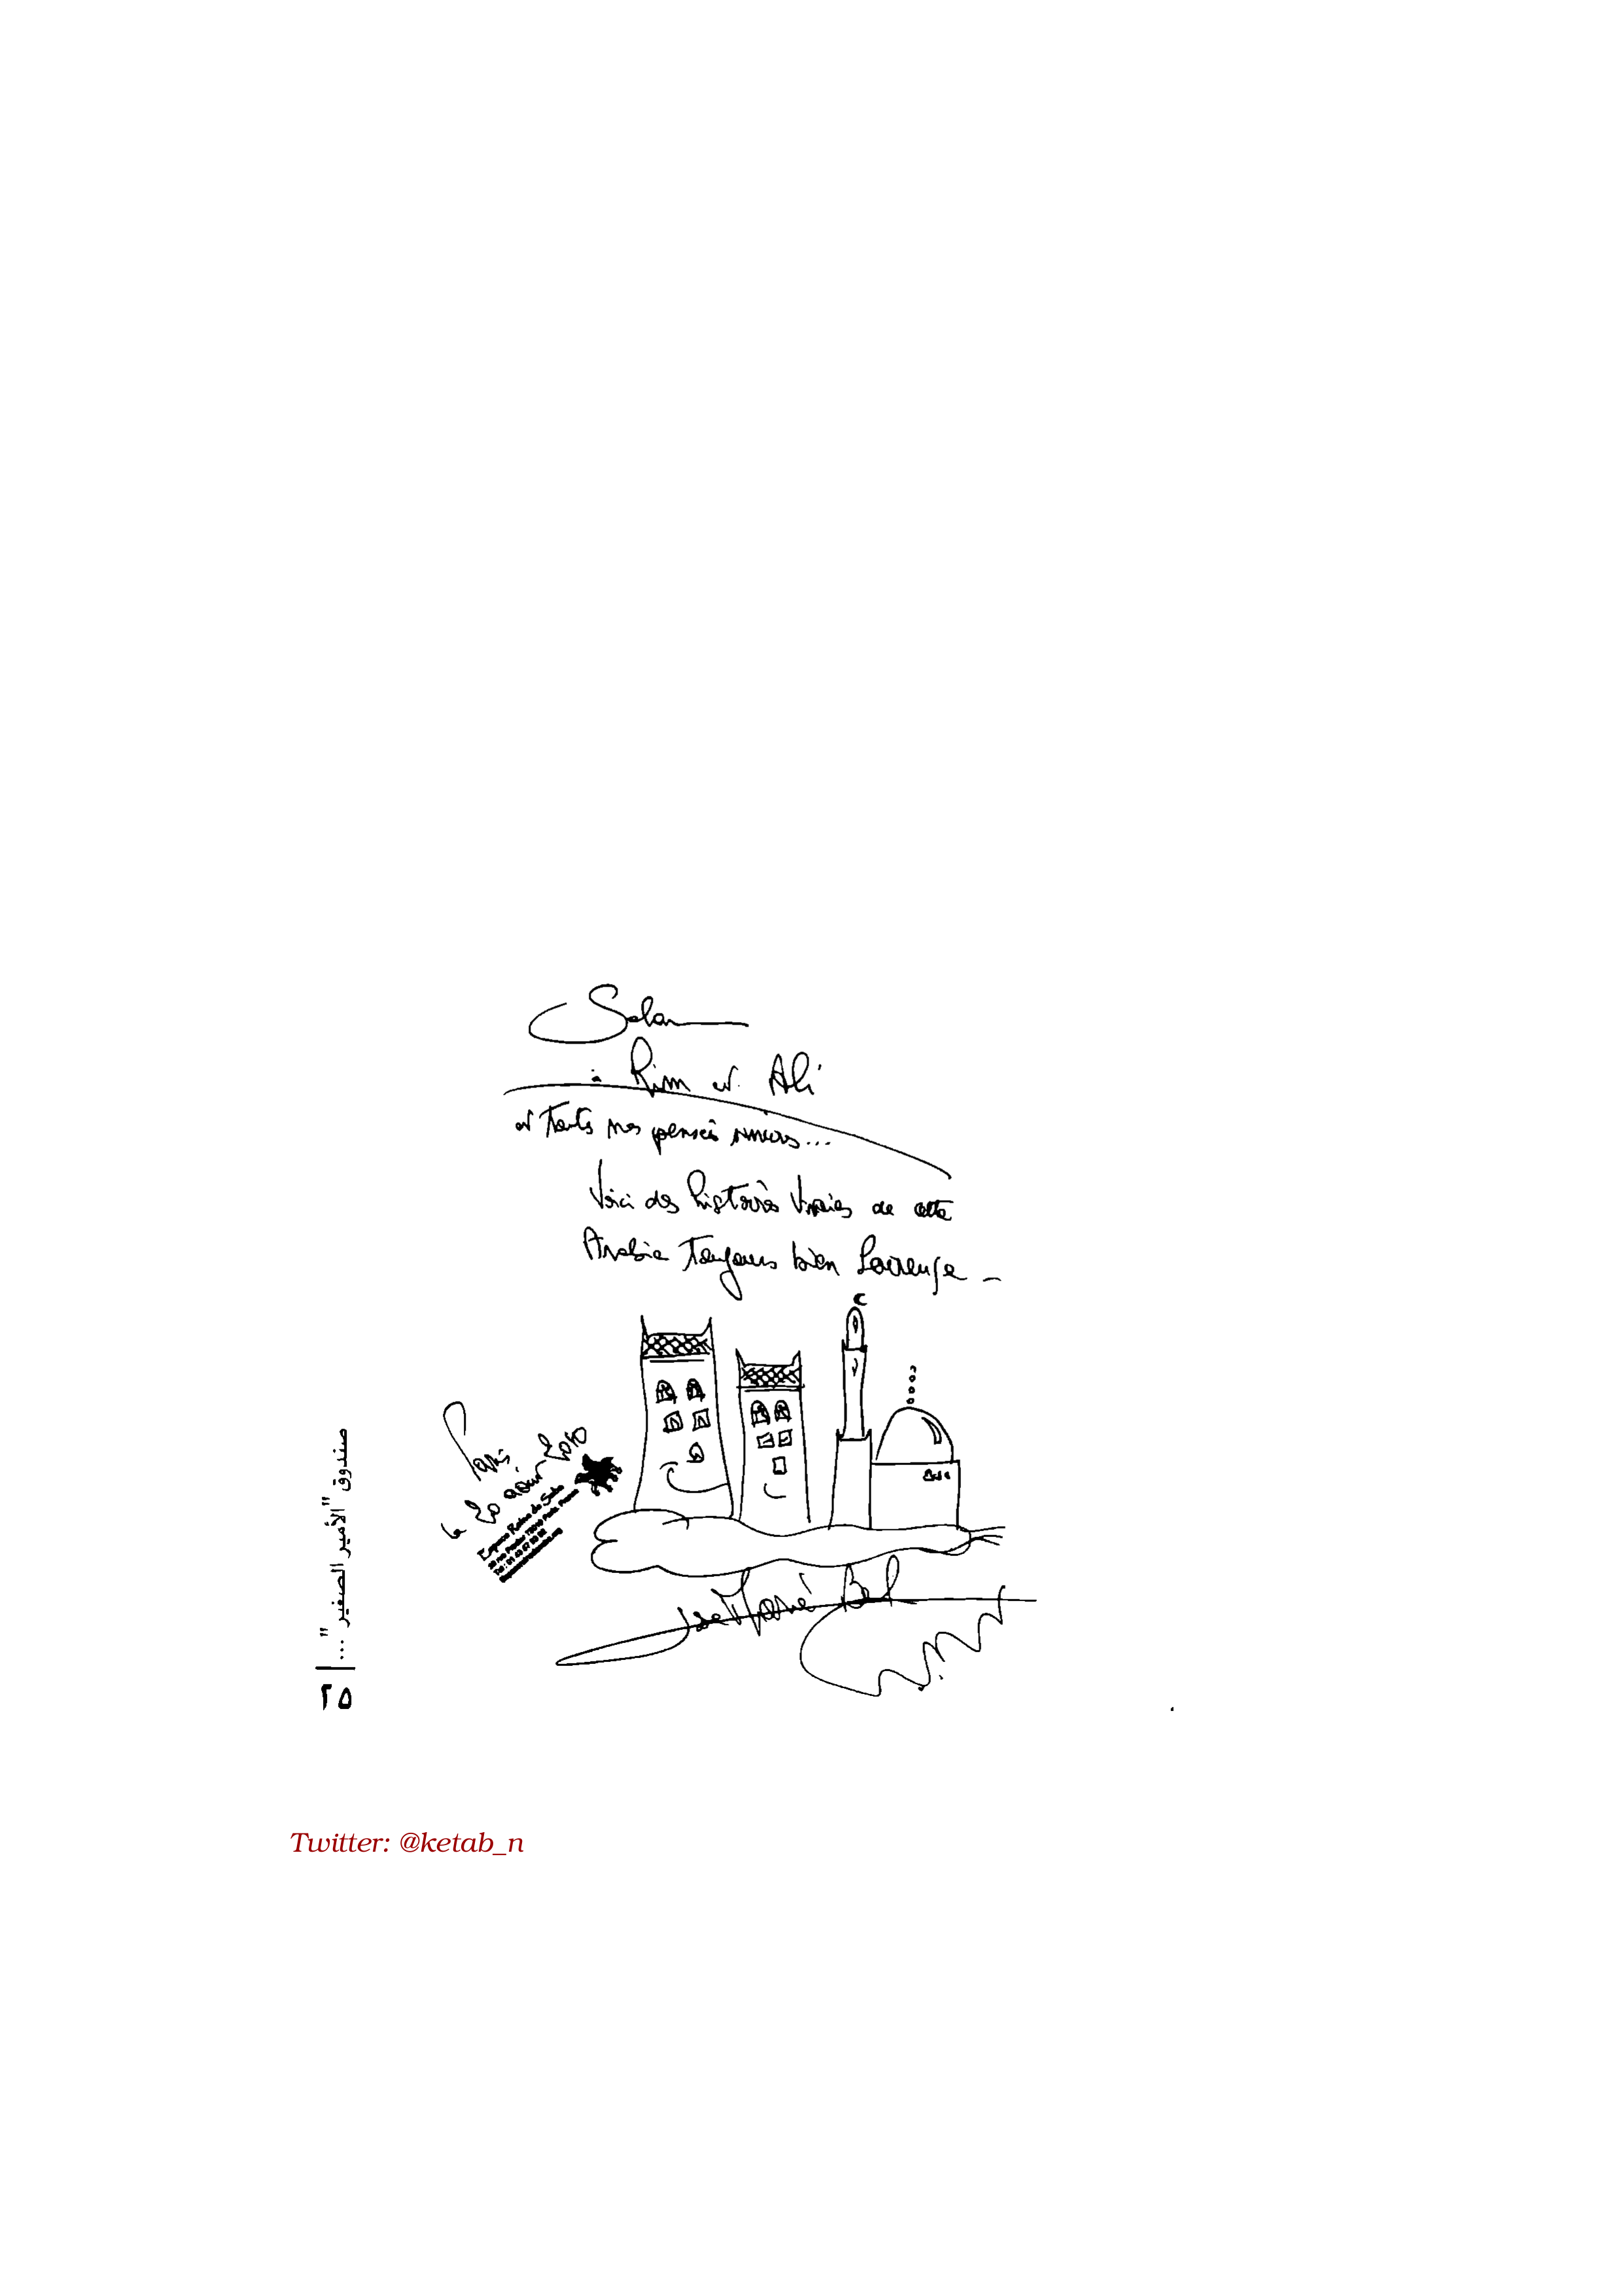 Salam
à Rim et Ali
et toutes nos pensées
Voici des histoires vraies de cette
Arabie toujours bien
Paris
le 20 août 2010
Espace Reine de Saba
José Marie Bel
صندوق "الأمير الصغير"...
٢٥
Twitter: @ketab_n